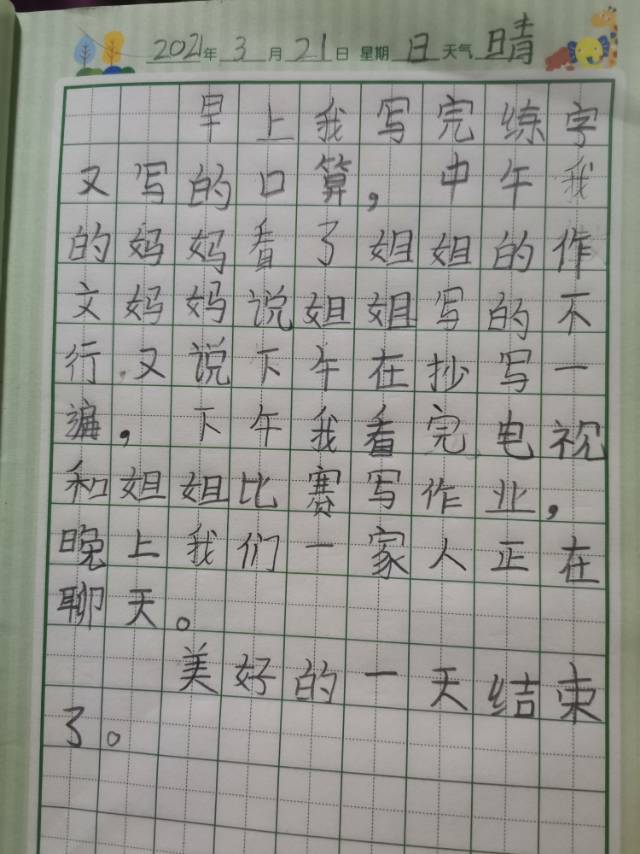 2021年3月21日 星期日 天气 晴
早上我写完练字
又写的口算，中午我
的妈妈看了姐姐的作
文妈妈说姐姐写的不
行又说下午在抄写一
遍，下午我看完电视
和姐姐比赛写作业，
晚上我们一家人正在
聊天。
美好的一天结束
了。